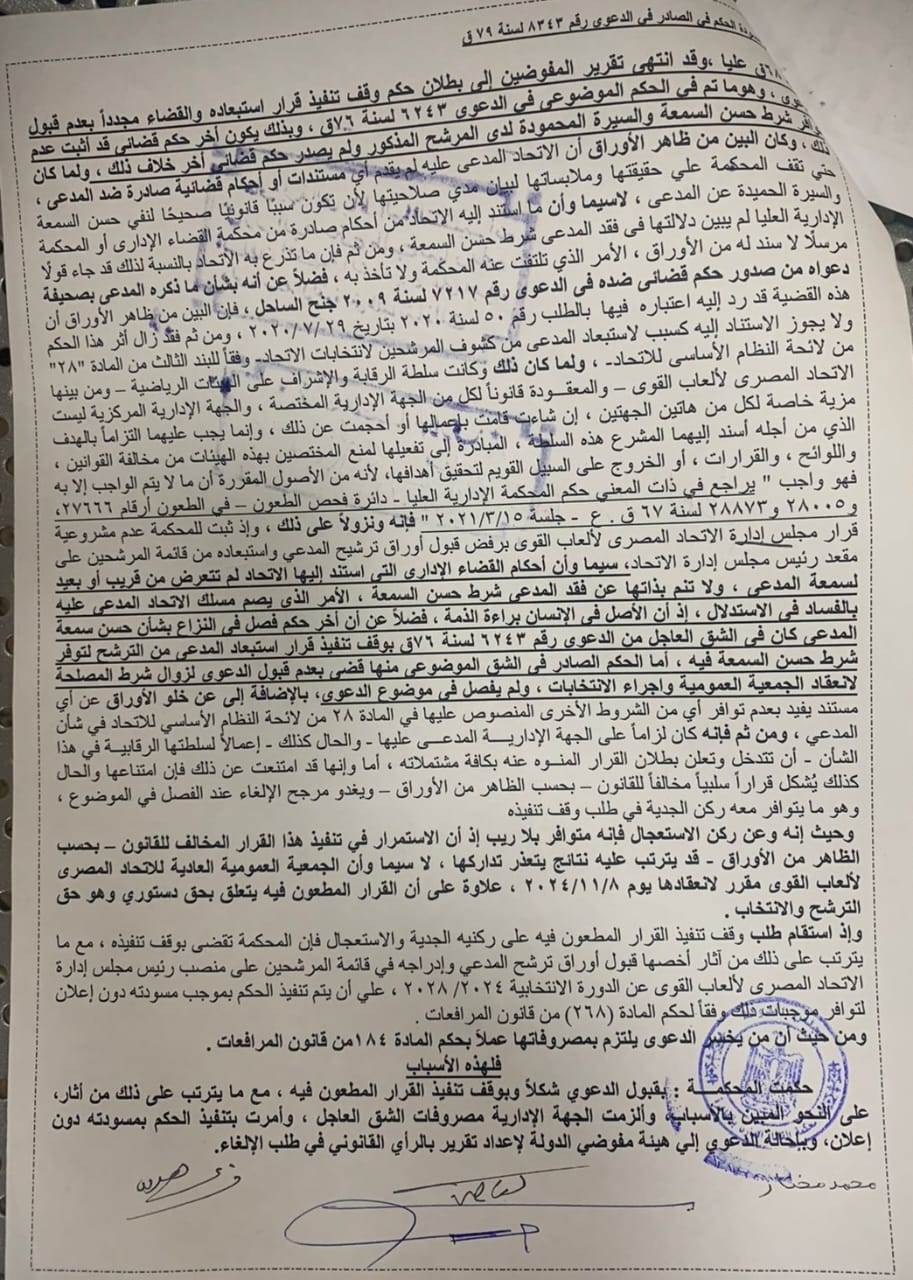 الحكم في الصادر في الدعوى رقم ٨٣٤٣ لسنة ٧٩ ق
عليا ،وقد انتهى تقرير المفوضين إلى بطلان حكم وقف تنفيذ قرار استبعاده والقضاء مجدداً بعدم قبول
، وهوما تم في الحكم الموضوعي في الدعوى ٦٢٤٣ لسنة ٧٦ق ، وبذلك يكون أخر حكم قضائي قد أثبت عدم
شرط حسن السمعة والسيرة المحمودة لدى المرشح المذكور ولم يصدر حكم قضائي أخر خلاف ذلك ، ولما كان
ذلك ، وكان البين من ظاهر الأوراق أن الاتحاد المدعى عليه لم يقدم أي مستندات أو أحكام قضائية صادرة ضد المدعى ،
حتى تقف المحكمة علي حقيقتها وملابساتها لبيان مدي صلاحيتها لأن تكون سببًا قانونيًا صحيحًا لنفي حسن السمعة
والسيرة الحميدة عن المدعى ، لاسيما وأن ما استند إليه الاتحاد من أحكام صادرة من محكمة القضاء الإدارى أو المحكمة
الإدارية العليا لم يبين دلالتها في فقد المدعى شرط حسن السمعة ، ومن ثم فإن ما تذرع به الاتحاد بالنسبة لذلك قد جاء قولًا
مرسلًا لا سند له من الأوراق ، الأمر الذي تلتفت عنه المحكمة ولا تأخذ به ، فضلًا عن أنه بشأن ما ذكره المدعى بصحيفة
دعواه من صدور حكم قضائى ضده في الدعوى رقم ٧٢١٧ لسنة ٢٠٠٩ جنح الساحل ، فإن البين من ظاهر الأوراق أن
هذه القضية قد رد إليه اعتباره فيها بالطلب رقم ٥٠ لسنة ٢٠٢٠ بتاريخ ٢٠٢٠/٧/٢٩ ، ومن ثم فقد زال أثر هذا الحكم
ولا يجوز الاستناد إليه كسبب لاستبعاد المدعى من كشوف المرشحين لانتخابات الاتحاد- وفقاً للبند الثالث من المادة "٢٨"
من لائحة النظام الأساسى للاتحاد- ، ولما كان ذلك وكانت سلطة الرقابة والإشراف على الهيئات الرياضية – ومن بينها
الاتحاد المصرى لألعاب القوى – والمعقودة قانوناً لكل من الجهة الإدارية المختصة ، والجهة الإدارية المركزية ليست
مزية خاصة لكل من هاتين الجهتين ، إن شاءت قامت بإعمالها أو أحجمت عن ذلك ، وإنما يجب عليهما التزاماً بالهدف
الذي من أجله أسند إليهما المشرع هذه السلطة ، المبادرة إلى تفعيلها لمنع المختصين بهذه الهيئات من مخالفة القوانين ،
واللوائح ، والقرارات ، أو الخروج على السبيل القويم لتحقيق أهدافها، لأنه من الأصول المقررة أن ما لا يتم الواجب إلا به
فهو واجب " يراجع في ذات المعني حكم المحكمة الإدارية العليا - دائرة فحص الطعون – في الطعون أرقام ٢٧٦٦٦،
و٢٨٠٠٥ و٢٨٨٧٣ لسنة ٦٧ ق . ع - جلسة ٢٠٢١/٣/١٥ " فإنه ونزولاً على ذلك ، وإذ ثبت للمحكمة عدم مشروعية
قرار مجلس إدارة الاتحاد المصرى لألعاب القوى برفض قبول أوراق ترشيح المدعي واستبعاده من قائمة المرشحين على
مقعد رئيس مجلس إدارة الاتحاد، سيما وأن أحكام القضاء الإدارى التى استند إليها الاتحاد لم تتعرض من قريب أو بعيد
لسمعة المدعى ، ولا تنم بذاتها عن فقد المدعى شرط حسن السمعة ، الأمر الذى يصم مسلك الاتحاد المدعى عليه
بالفساد فى الاستدلال ، إذ أن الأصل فى الإنسان براءة الذمة ، فضلاً عن أن أخر حكم فصل فى النزاع بشأن حسن سمعة
المدعى كان فى الشق العاجل من الدعوى رقم ٦٢٤٣ لسنة ٧٦ق بوقف تنفيذ قرار استبعاد المدعى من الترشح لتوفر
شرط حسن السمعة فيه ، أما الحكم الصادر فى الشق الموضوعى منها قضى بعدم قبول الدعوى لزوال شرط المصلحة
لانعقاد الجمعية العمومية وإجراء الانتخابات ، ولم يفصل فى موضوع الدعوى، بالإضافة إلى عن خلو الأوراق عن أي
مستند يفيد بعدم توافر أي من الشروط الأخرى المنصوص عليها في المادة ٢٨ من لائحة النظام الأساسي للاتحاد في شأن
المدعي ، ومن ثم فإنه كان لزاماً على الجهة الإداريـــة المدعــى عليها - والحال كذلك - إعمالاً لسلطتها الرقابية في هذا
الشأن - أن تتدخل وتعلن بطلان القرار المنوه عنه بكافة مشتملاته ، أما وإنها قد امتنعت عن ذلك فإن امتناعها والحال
كذلك يُشكل قراراً سلبياً مخالفاً للقانون – بحسب الظاهر من الأوراق – ويغدو مرجح الإلغاء عند الفصل في الموضوع ،
وهو ما يتوافر معه ركن الجدية في طلب وقف تنفيذه
وحيث إنه وعن ركن الاستعجال فإنه متوافر بلا ريب إذ أن الاستمرار في تنفيذ هذا القرار المخالف للقانون – بحسب
الظاهر من الأوراق - قد يترتب عليه نتائج يتعذر تداركها ، لا سيما وأن الجمعية العمومية العادية للاتحاد المصرى
لألعاب القوى مقرر لانعقادها يوم ٢٠٢٤/١١/٨ ، علاوة على أن القرار المطعون فيه يتعلق بحق دستوري وهو حق
الترشح والانتخاب .
وإذ استقام طلب وقف تنفيذ القرار المطعون فيه على ركنيه الجدية والاستعجال فإن المحكمة تقضى بوقف تنفيذه ، مع ما
يترتب على ذلك من آثار أخصها قبول أوراق ترشح المدعي وإدراجه في قائمة المرشحين على منصب رئيس مجلس إدارة
الاتحاد المصرى لألعاب القوى عن الدورة الانتخابية ٢٠٢٤/ ٢٠٢٨ ، علي أن يتم تنفيذ الحكم بموجب مسودته دون إعلان
لتوافر موجبات ذلك وفقاً لحكم المادة (٢٦٨) من قانون المرافعات .
ومن حيث أن من يخسر الدعوى يلتزم بمصروفاتها عملاً بحكم المادة ١٨٤من قانون المرافعات .
فلهذه الأسباب
حكمت المحكمـــة : بقبول الدعوي شكلاً وبوقف تنفيذ القرار المطعون فيه ، مع ما يترتب على ذلك من أثار،
على النحو المبين بالأسباب، وألزمت الجهة الإدارية مصروفات الشق العاجل ، وأمرت بتنفيذ الحكم بمسودته دون
إعلان، وبإحالة الدعوي إلي هيئة مفوضي الدولة لإعداد تقرير بالرأي القانوني في طلب الإلغاء.
محمد مختار